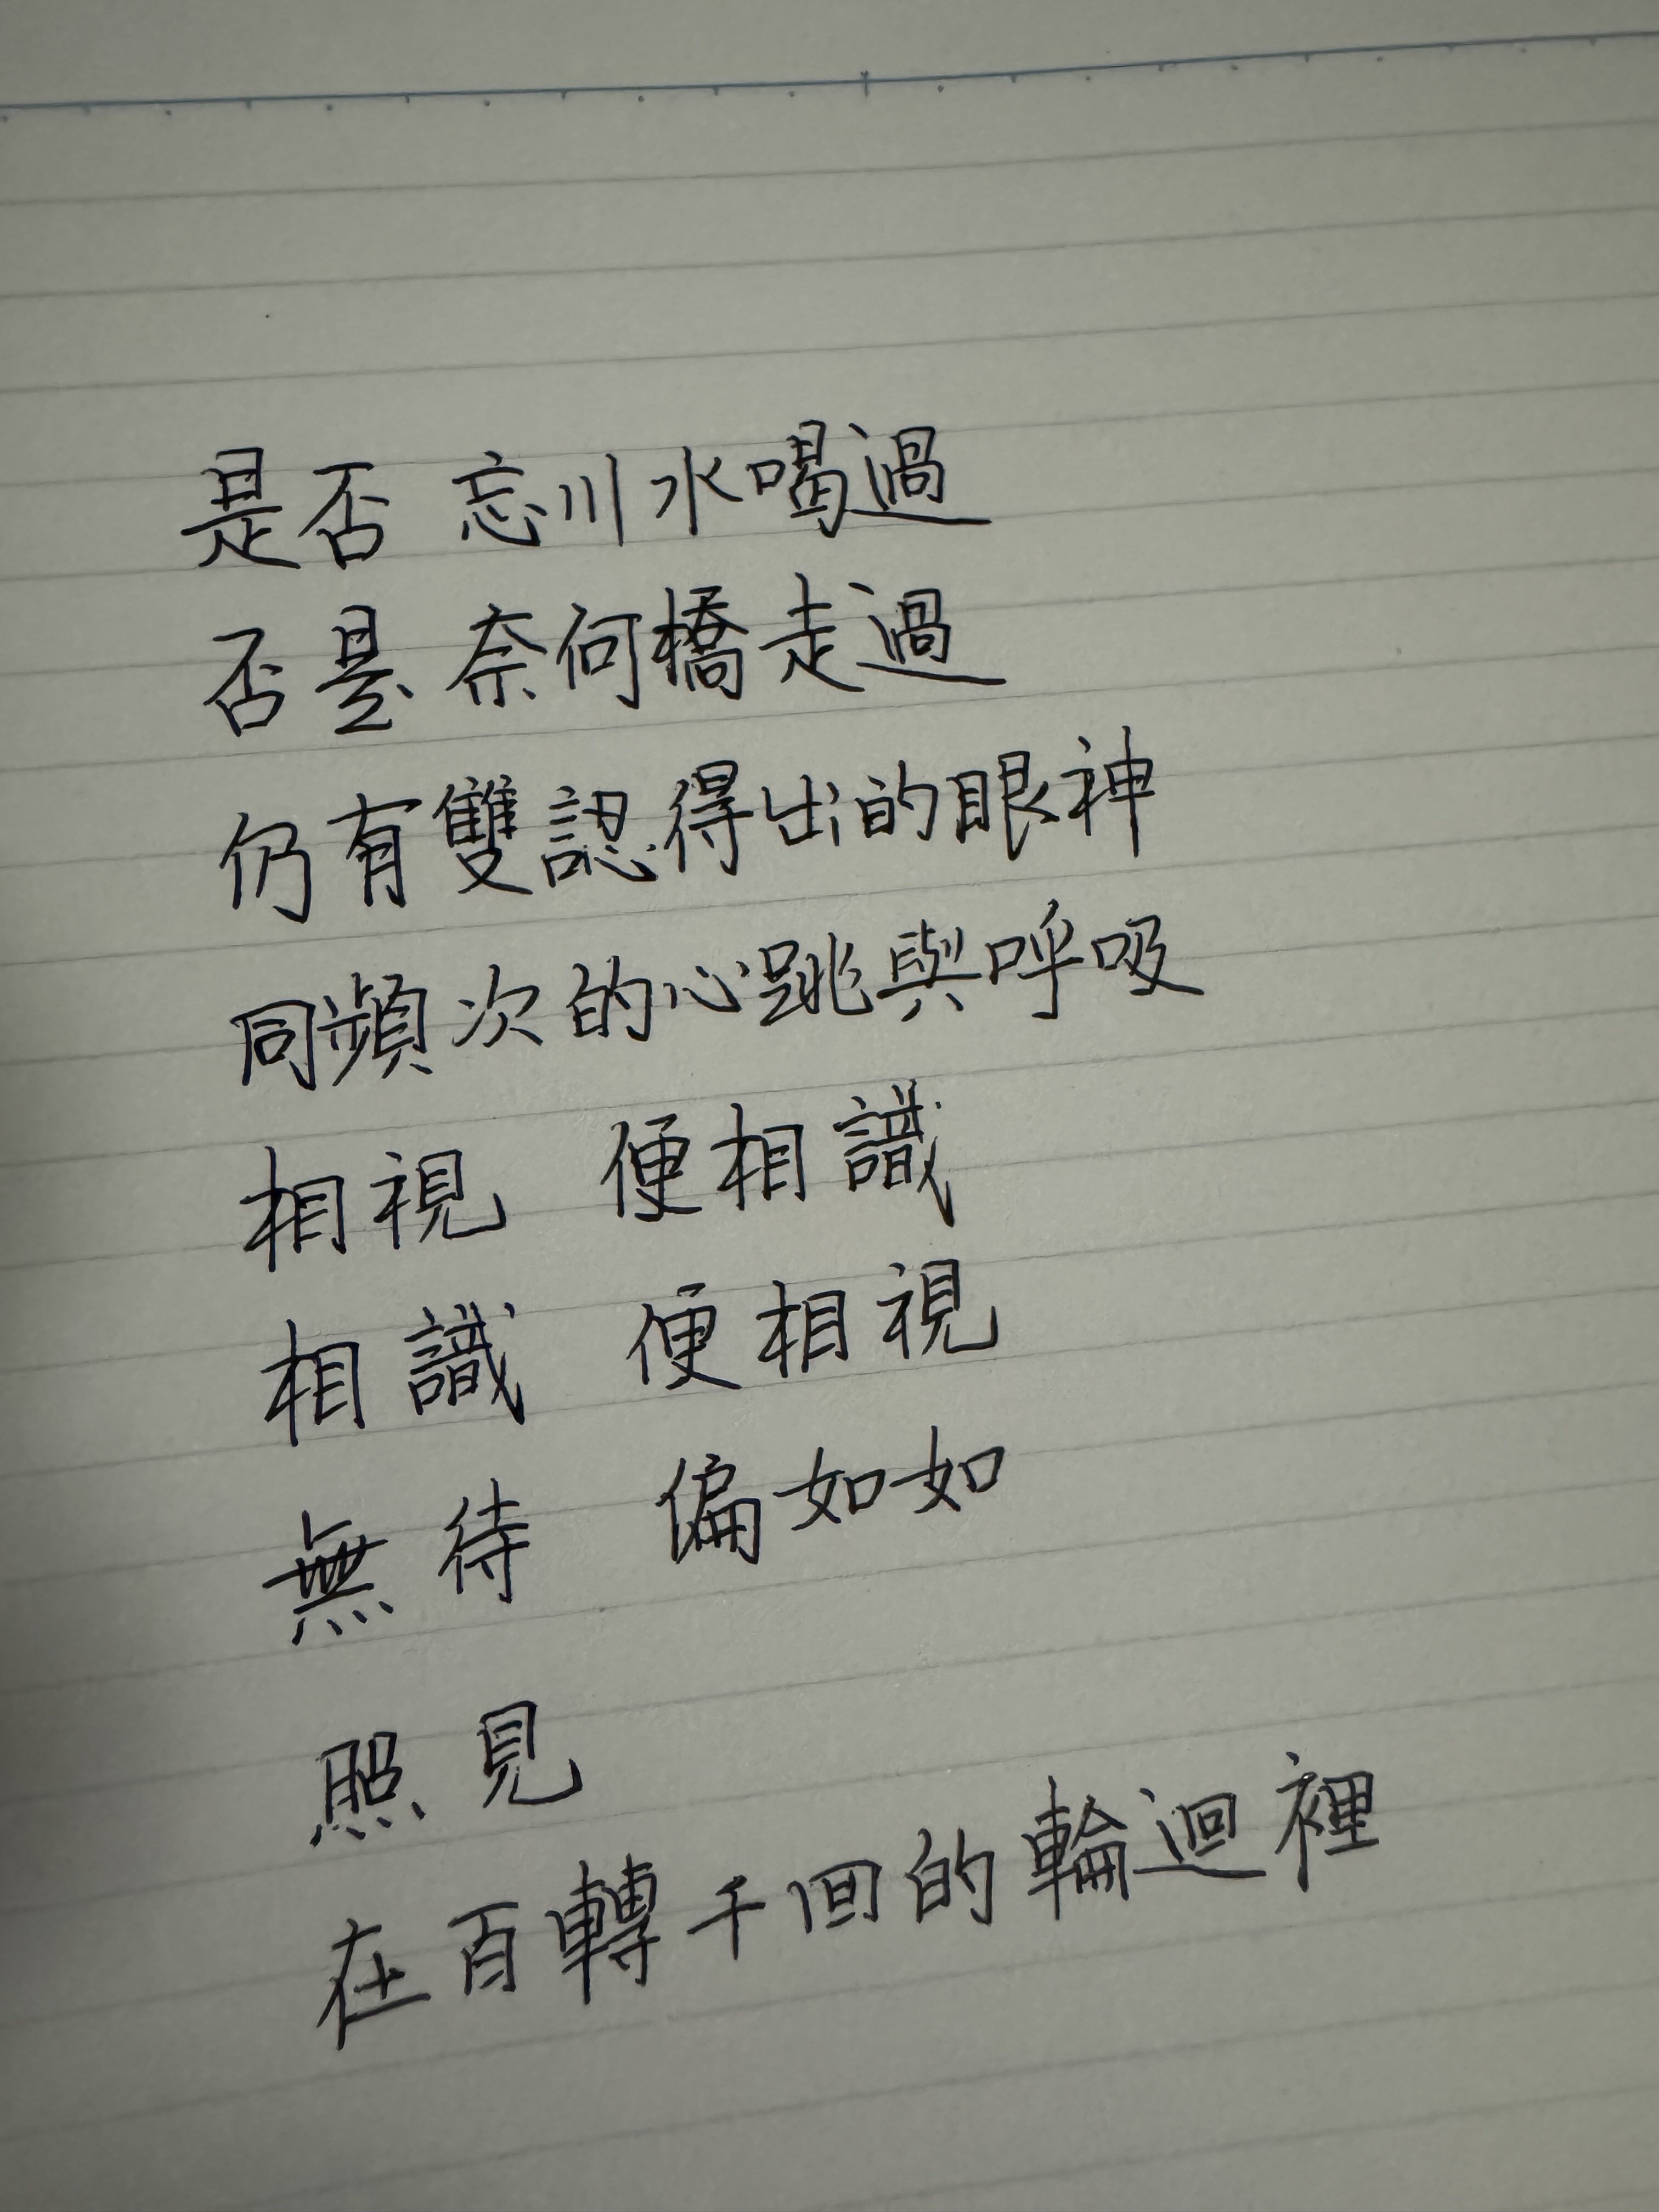 是否 忘川水喝過
否是 奈何橋走過
仍有雙認得出的眼神
同頻次的心跳與呼吸
相視 便相識
相識 便相視
無待 偏如如
照見
在百轉千回的輪迴裡